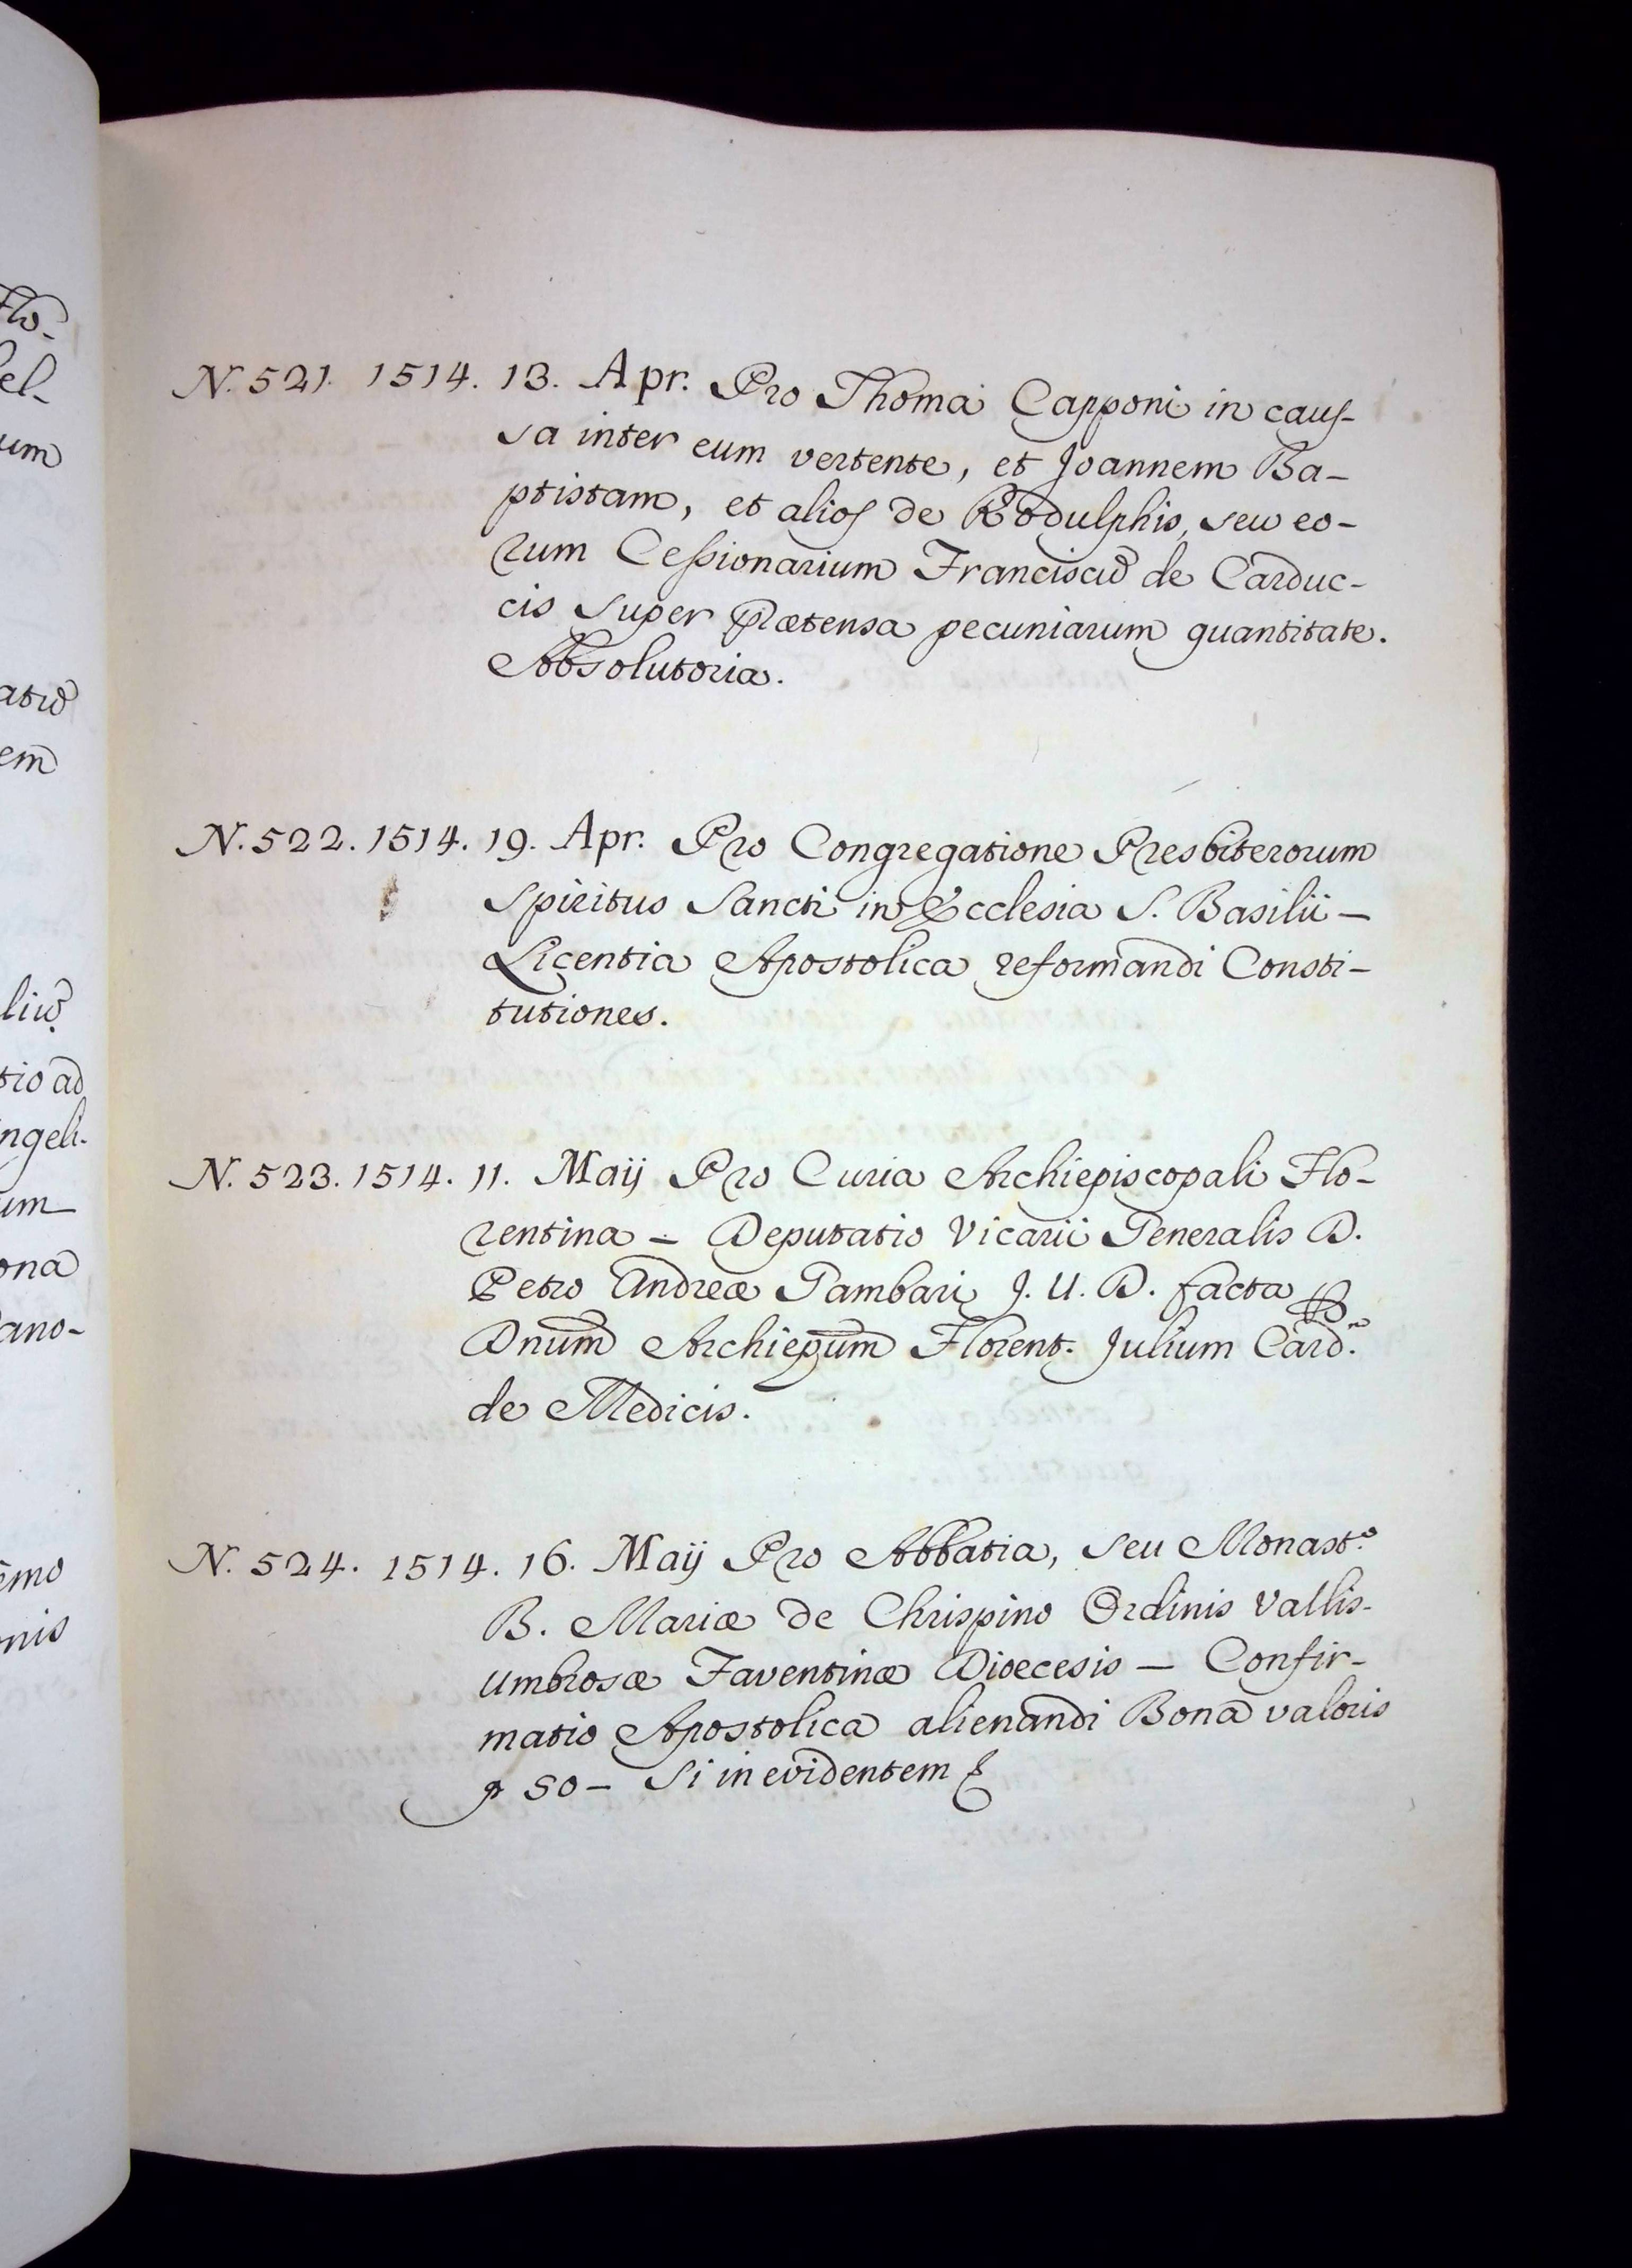 N. 521. 1514. 13. Apr. Pro Thoma Capponi in caus-
sa inter eum vertente, et Joannem Ba-
ptistam, et alios de Rodulphis, seu eo-
rum Cessionarium Franciscũ de Carduc-
cis super prætensa pecuniarum quantitate.
Absolutoria.
N. 522. 1514. 19. Apr. Pro Congregatione Presbiterorum
Spiritus Sancti in Ecclesia S. Basilii –
Licentia Apostolica reformandi Consti-
tutiones.
N. 523. 1514. 11. Maij Pro Curia Archiepiscopali Flo-
rentina – Deputatio Vicarii Generalis D.
Petro Andreæ Gambari J. U. D. facta ꝑ
Dnum Archiepum Florent. Julium Card.
de Medicis.
N. 524. 1514. 16. Maij Pro Abbatia, seu Monast.º
B. Mariæ de Chrispino Ordinis Vallis-
umbrosæ Faventinæ Diœcesis – Confir-
matio Apostolica alienandi Bona valoris
50 – Si in evidentem
Flo-
el-
um
atũ
em
liũ
tio ad
ngeli-
um
ona
ano-
emo
onis